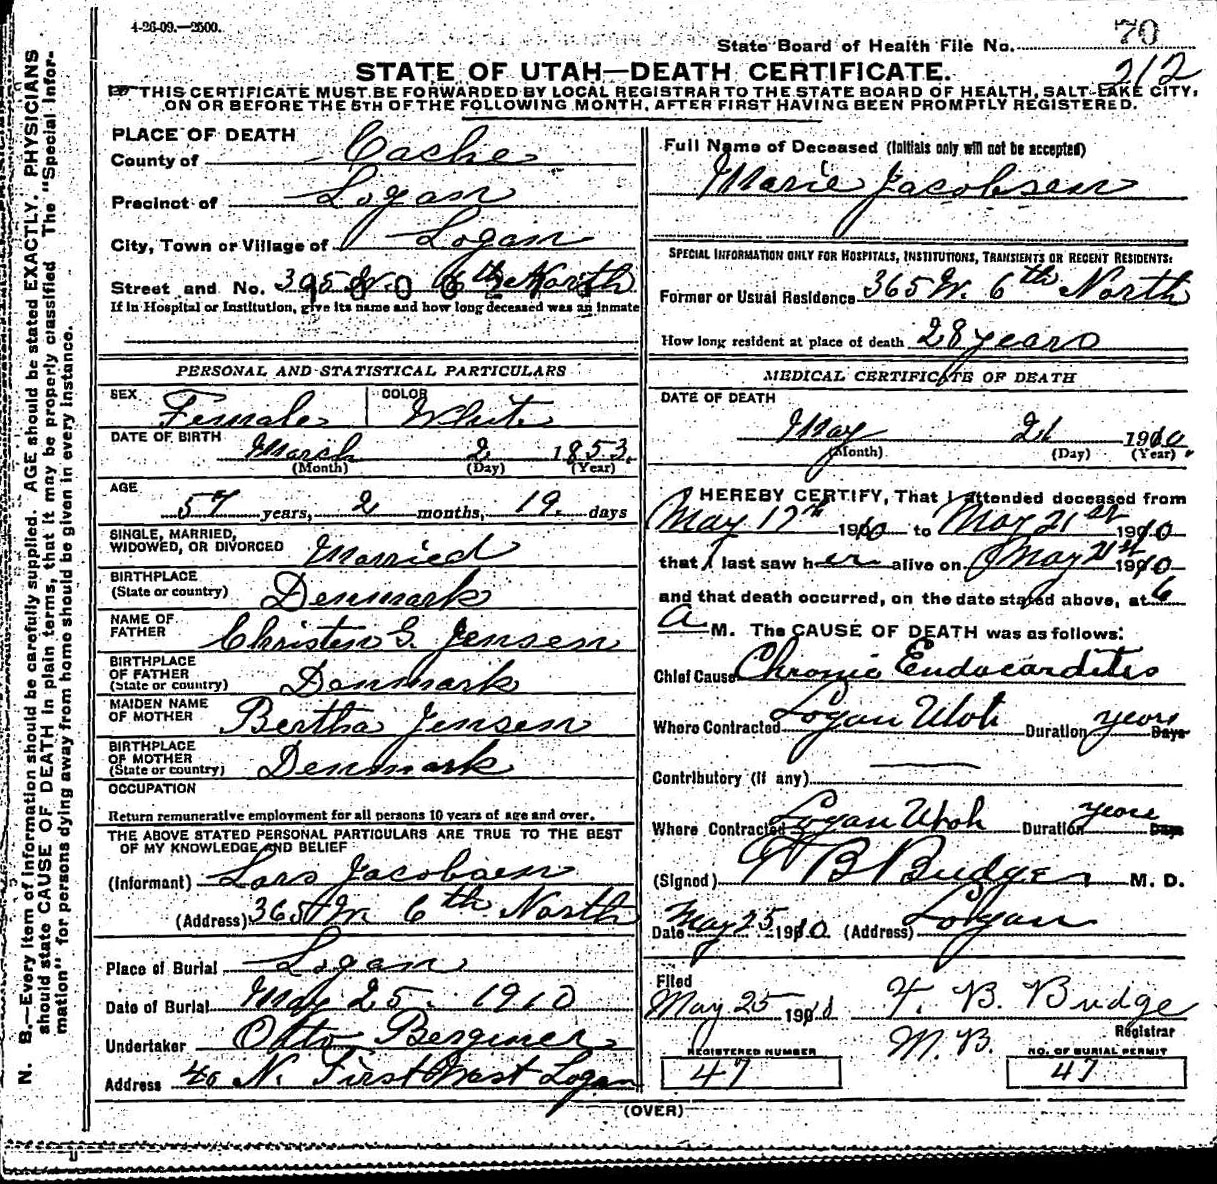 4-26-09.—2500.
State Board of Health File No. 70
212
STATE OF UTAH—DEATH CERTIFICATE.
THIS CERTIFICATE MUST BE FORWARDED BY LOCAL REGISTRAR TO THE STATE BOARD OF HEALTH, SALT LAKE CITY,
ON OR BEFORE THE 5TH OF THE FOLLOWING MONTH, AFTER FIRST HAVING BEEN PROMPTLY REGISTERED.
N. B.—Every item of information should be carefully supplied. AGE should be stated EXACTLY. PHYSICIANS
should state CAUSE OF DEATH in plain terms, that it may be properly classified The "Special Infor-
mation" for persons dying away from home should be given in every instance.
PLACE OF DEATH
County of Cache
Precinct of Logan
City, Town or Village of Logan
Street and No. W. 6th North
If in Hospital or Institution, give its name and how long deceased was an inmate
PERSONAL AND STATISTICAL PARTICULARS
SEX Female COLOR White
DATE OF BIRTH March 2 1853.
(Month) (Day) (Year)
AGE
57 years, 2 months, 19. days
SINGLE, MARRIED,
WIDOWED, OR DIVORCED Married
BIRTHPLACE
(State or country) Denmark
NAME OF
FATHER Christen G. Jensen
BIRTHPLACE
OF FATHER
(State or country) Denmark
MAIDEN NAME
OF MOTHER Bertha Jensen
BIRTHPLACE
OF MOTHER
(State or country) Denmark
OCCUPATION
Return remunerative employment for all persons 10 years of age and over.
THE ABOVE STATED PERSONAL PARTICULARS ARE TRUE TO THE BEST
OF MY KNOWLEDGE AND BELIEF
(Informant) Lars Jacobsen
(Address) 365 W. 6th North
Place of Burial Logan
Date of Burial May 25. 1910
Undertaker Otto
Address 40 N. First West Logan
Full Name of Deceased (Initials only will not be accepted)
Marie Jacobsen
SPECIAL INFORMATION ONLY FOR HOSPITALS, INSTITUTIONS, TRANSIENTS OR RECENT RESIDENTS:
Former or Usual Residence 365 W. 6th North
How long resident at place of death 28 years
MEDICAL CERTIFICATE OF DEATH
DATE OF DEATH
May 21 1910.
(Month) (Day) (Year)
I HEREBY CERTIFY, That I attended deceased from
May 17th 1910 to May 21st 1910
that I last saw her alive on May 21st 1910
and that death occurred, on the date stated above, at 6
a M. The CAUSE OF DEATH was as follows:
Chief Cause Chronic Endocarditis
Where Contracted Logan Utah Duration years Days
Contributory (if any)
Where Contracted Logan Utah Duration years Days
(Signed) B Budge M. D.
Date May 25 1910. (Address) Logan
Filed
May 25 191 F. B. Budge
Registrar
REGISTERED NUMBER
47
NO. OF BURIAL PERMIT
47
(OVER)